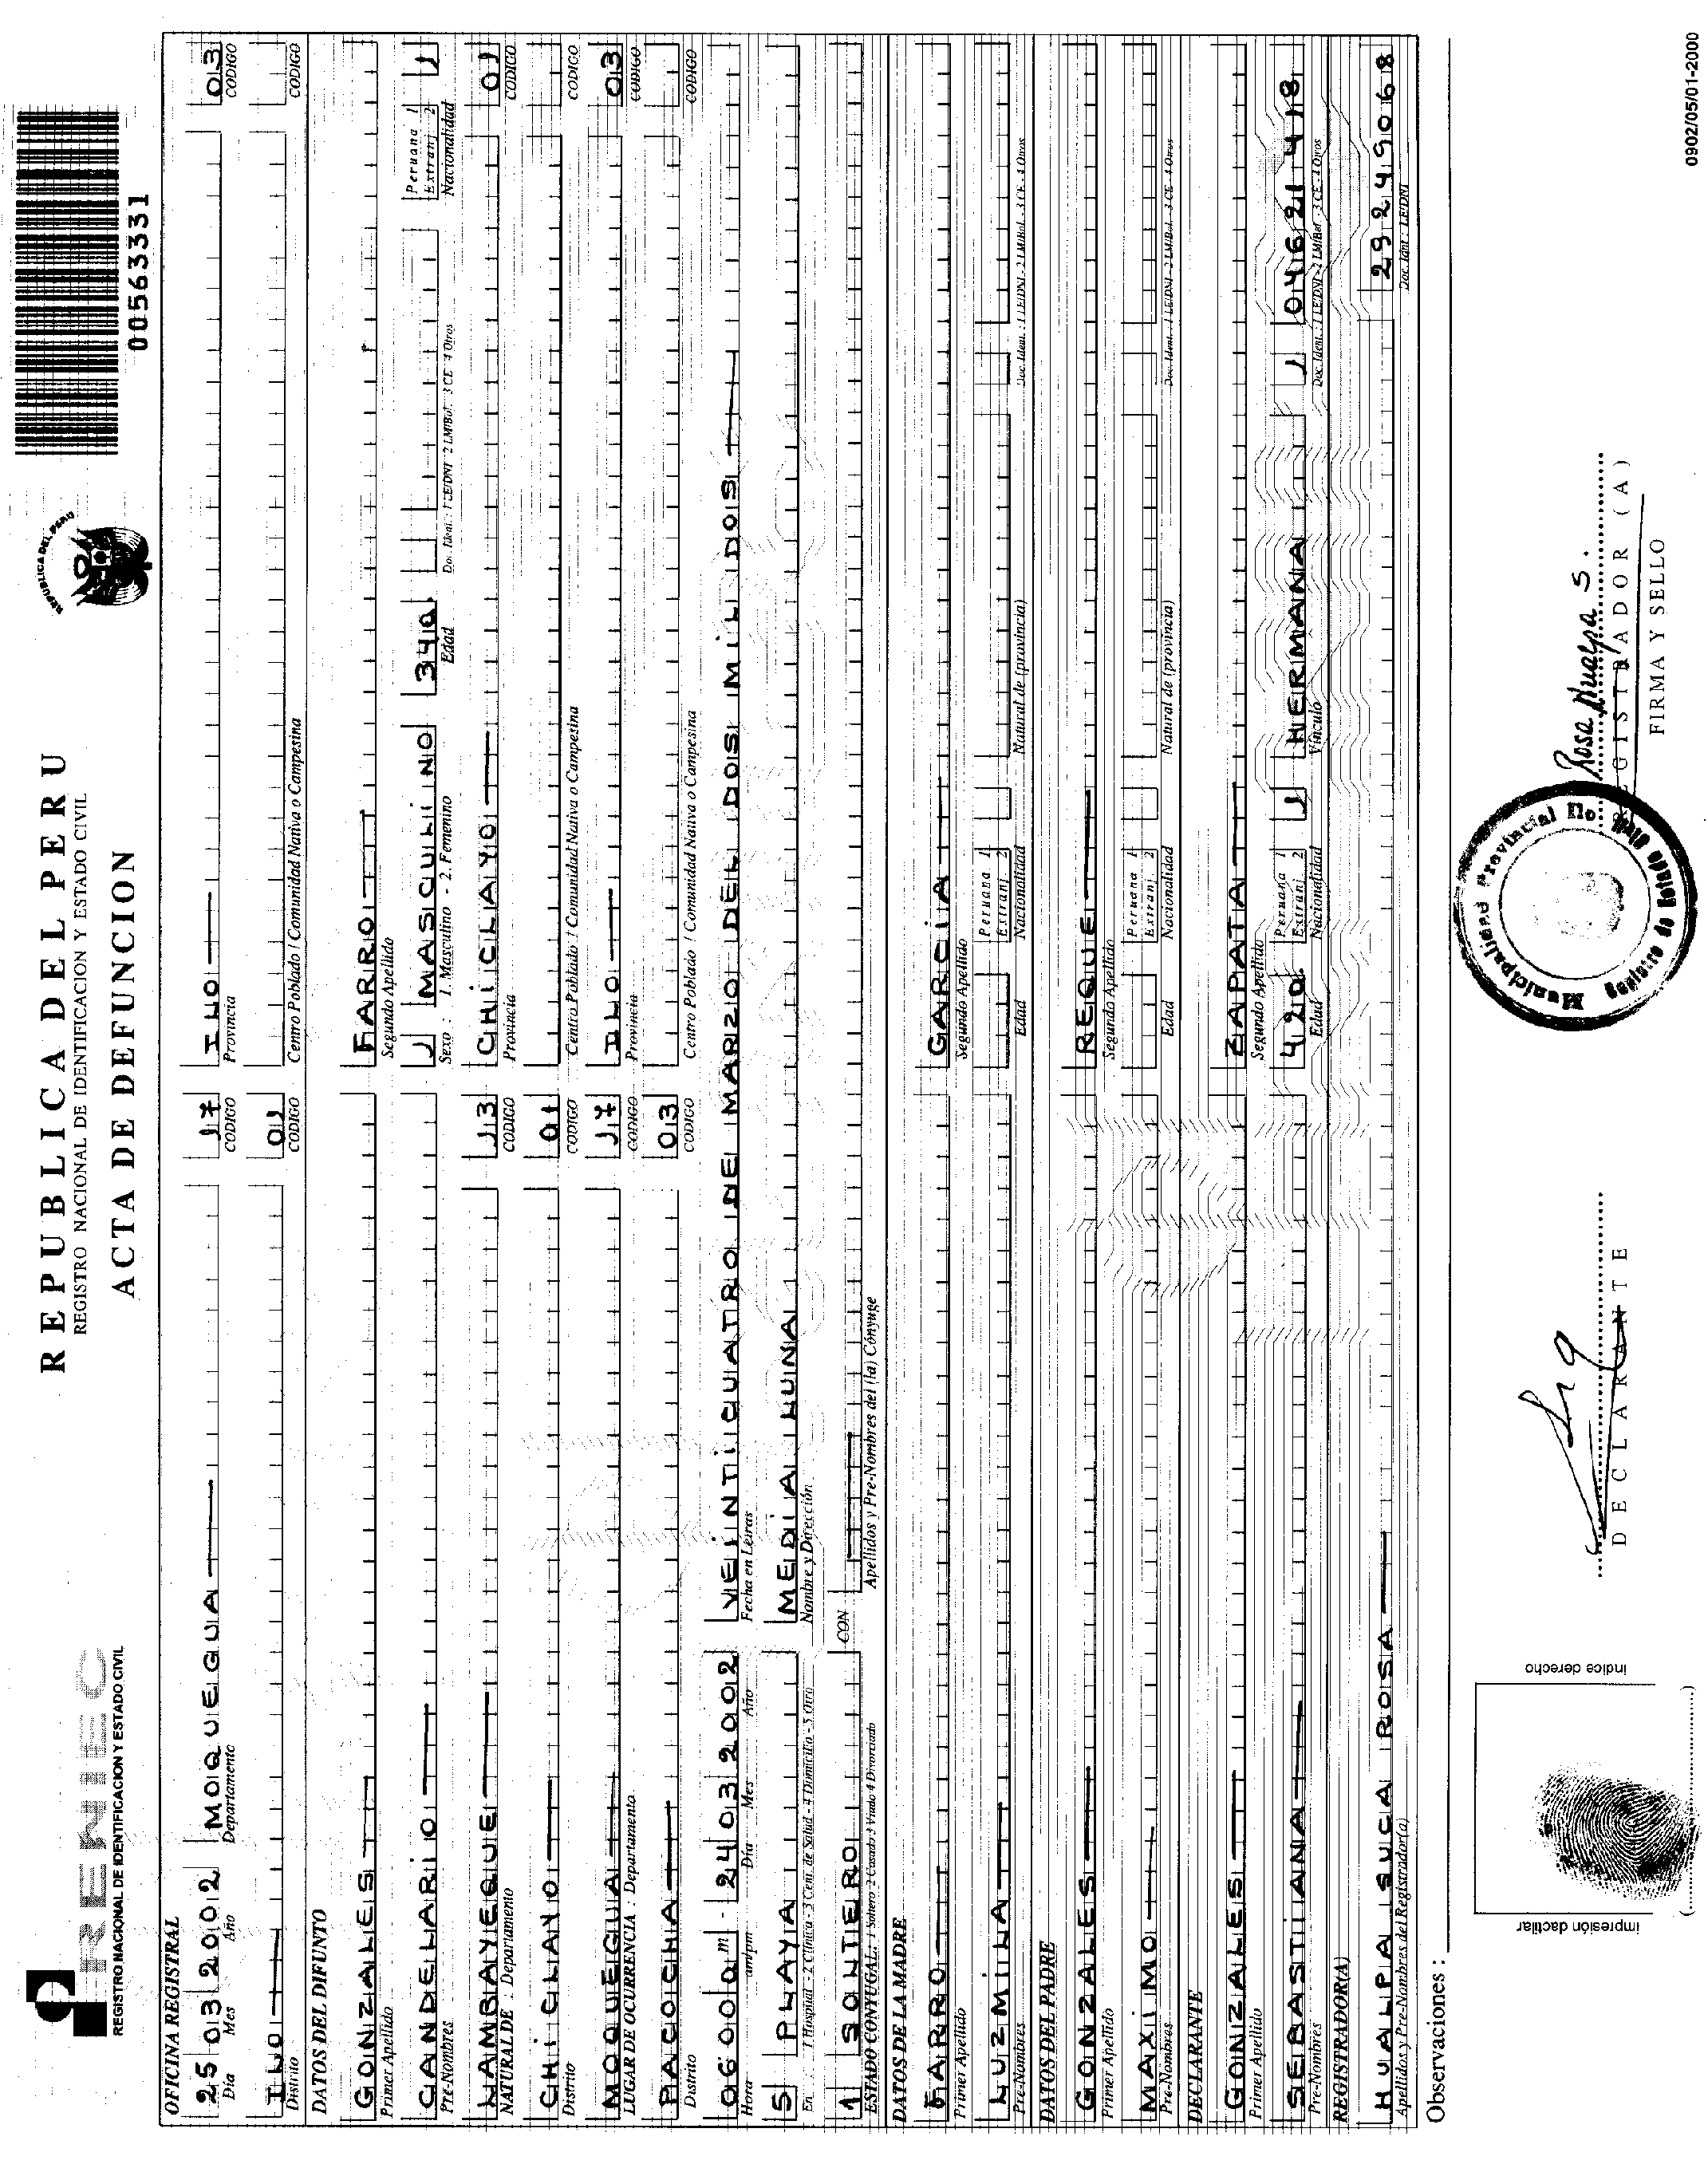 RENIEC
REGISTRO NACIONAL DE IDENTIFICACION Y ESTADO CIVIL
REPUBLICA DEL PERU
REGISTRO NACIONAL DE IDENTIFICACION Y ESTADO CIVIL
ACTA DE DEFUNCION
REPUBLICA DEL PERU
00563331
OFICINA REGISTRAL
25 03 2002 MOQUEGUA 17 ILO 03
Dia Mes Año Departamento CODIGO Provincia CODIGO
ILO 01
Distrito CODIGO Centro Poblado / Comunidad Nativa o Campesina CODIGO
DATOS DEL DIFUNTO
GONZALES FARRO
Primer Apellido Segundo Apellido
CANDELARIO 1 MASCULINO 34a. Peruana 1 Extranj 2 1
Pre-Nombres Sexo : 1. Masculino - 2. Femenino Edad Doc. Ident.: 1 LE/DNI 2 LM/Bol. 3 CE 4 Otros Nacionalidad
LAMBAYEQUE 13 CHICLAYO 01
NATURAL DE : Departamento CODIGO Provincia CODIGO
CHICLAYO 01
Distrito CODIGO Centro Poblado / Comunidad Nativa o Campesina CODIGO
MOQUEGUA 17 ILO 03
LUGAR DE OCURRENCIA : Departamento CODIGO Provincia CODIGO
PACOCHA 03
Distrito CODIGO Centro Poblado / Comunidad Nativa o Campesina CODIGO
0600am 24 03 2002 VEINTICUATRO DE MARZO DEL DOS MIL DOS
Hora am/pm Día Mes Año Fecha en Letras
5 PLAYA MEDIA LUNA
En : 1 Hospital - 2 Clínica - 3 Cent. de Salud - 4 Domicilio - 5 Otro Nombre y Dirección
1 SOLTERO CON
ESTADO CONYUGAL: 1 Soltero 2 Casado 3 Viudo 4 Divorciado Apellidos y Pre-Nombres del (la) Cónyuge
DATOS DE LA MADRE
FARRO GARCIA
Primer Apellido Segundo Apellido
LUZMILA Peruana 1 Extranj 2
Pre-Nombres Edad Nacionalidad Natural de (provincia) Doc. Ident.: 1 LE/DNI - 2 LM/Bol. - 3 CE - 4 Otros
DATOS DEL PADRE
GONZALES REQUE
Primer Apellido Segundo Apellido
MAXIMO Peruana 1 Extranj 2
Pre-Nombres Edad Nacionalidad Natural de (provincia) Doc. Ident.: 1 LE/DNI - 2 LM/Bol. - 3 CE - 4 Otros
DECLARANTE
GONZALES ZAPATA
Primer Apellido Segundo Apellido
SEBASTIANA 42a. Peruana 1 Extranj 2 1 HERMANA 1 04621418
Pre-Nombres Edad Nacionalidad Vínculo Doc. Ident.: 1 LE/DNI - 2 LM/Bol. - 3 CE - 4 Otros
REGISTRADOR(A)
HUALPA SUCA ROSA 29249068
Apellidos y Pre-Nombres del Registrador(a) Doc. Idnt.: LE/DNI
Observaciones :
impresión dactilar
índice derecho
DECLARANTE
Municipalidad Provincial Ilo
Registro de Estado Civil
Rosa Hualpa S.
REGISTRADOR (A)
FIRMA Y SELLO
0902/05/01-2000